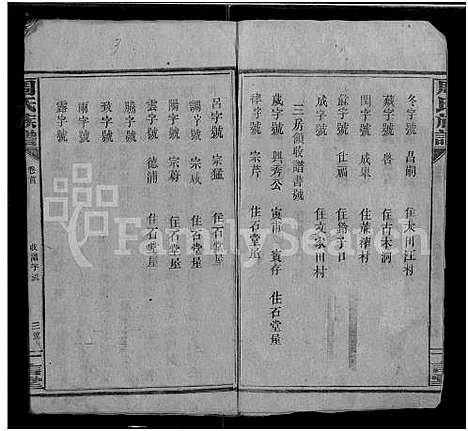 周氏族譜
冬字號 昌嗣 住大田江村
藏字號 魯 住古木洞
閏字號 成皋 住蕉灣村
餘字號 仕福 住鎊子口
成字號 住文宗田村
三房領收譜書號
歲字號 興秀公 寅甫 賓存 住石堂屋
律字號 宗芹
呂字號 宗猛 住石堂屋
調字號 宗咸 住石堂屋
陽字號 宗蔚 住石堂屋
雲字號 德浦 住石堂屋
騰字號
致字號
雨字號
露字號
周氏族譜 卷首 收譜字號 三
FamilySearch
3